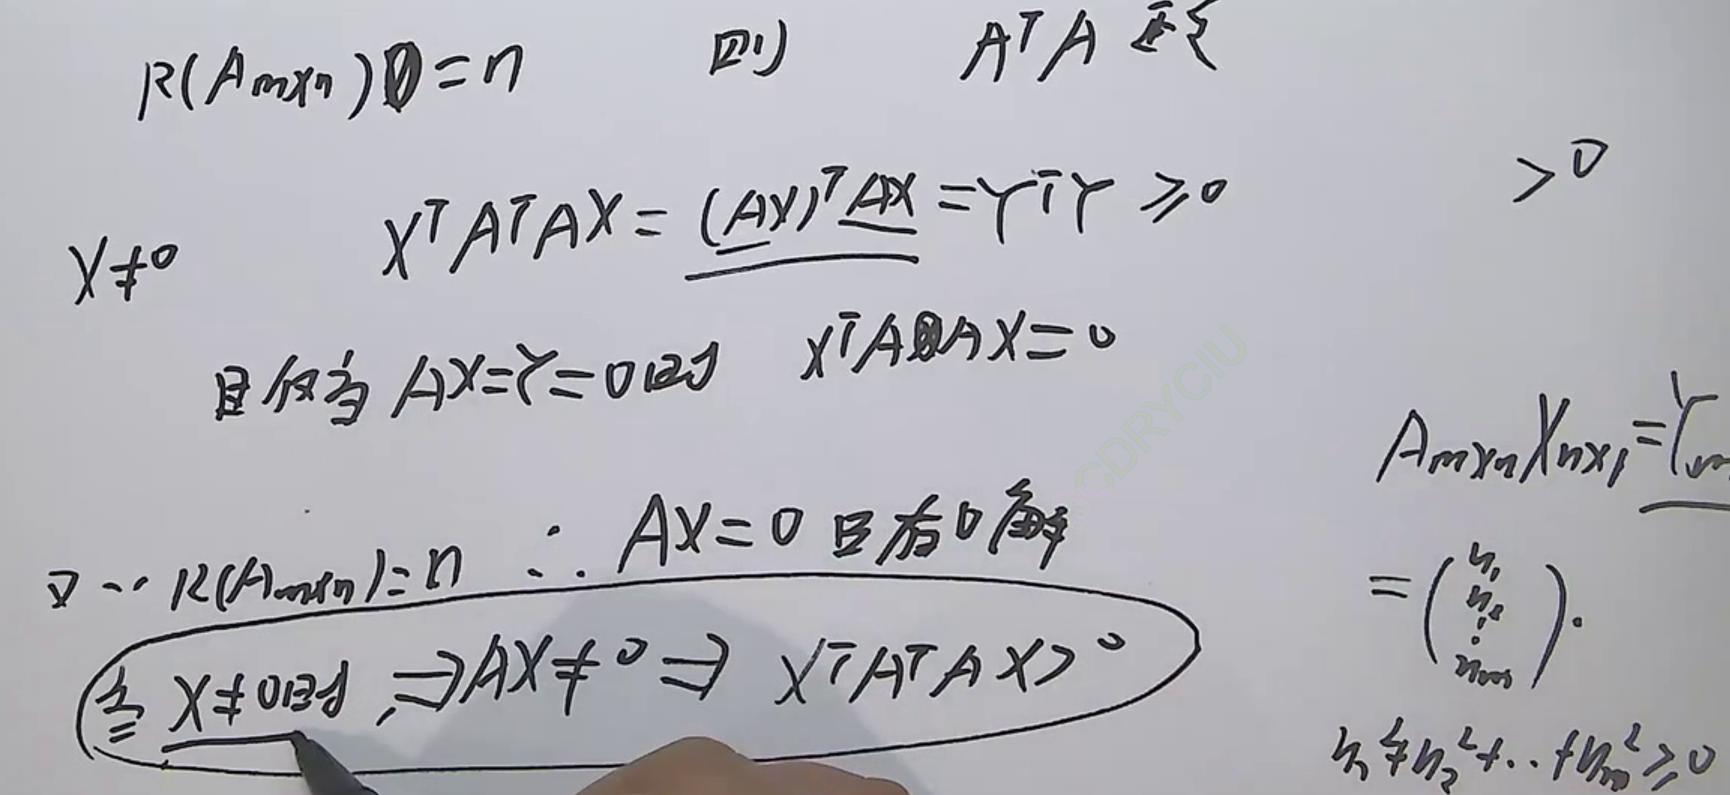 R(Am×n)=n 则 AᵀA 正定
>0
X≠0 XᵀAᵀAX=(AX)ᵀAX=YᵀY≥0
且仅当AX=Y=0时 XᵀAAX=0
Am×nXn×1=Ym
又∵R(Am×n)=n ∴AX=0只有0解
当X≠0时,⇒AX≠0⇒XᵀAᵀAX>0
=
n₁
n₂
⋮
nm
n₁²+n₂²+..+nm²≥0